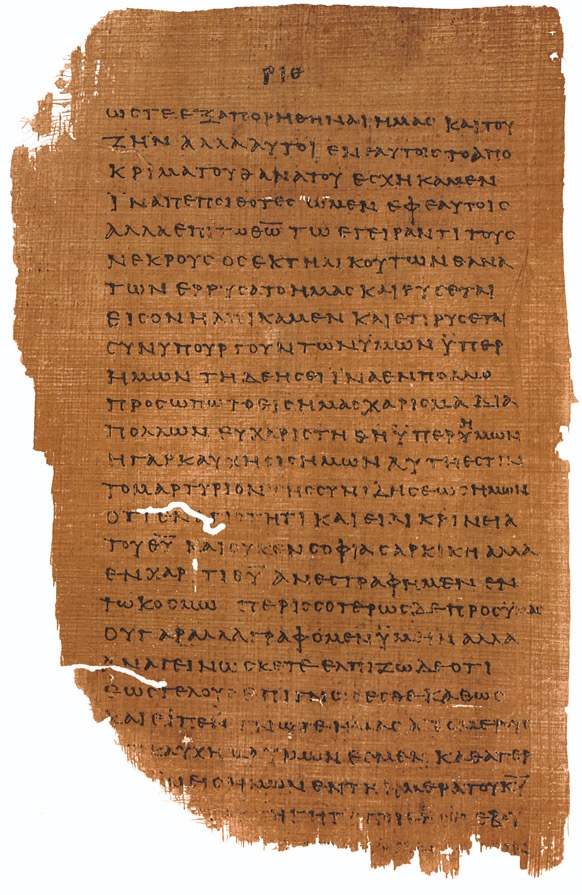 ΡΙΘ
ΩϹΤΕΕΞΑΠΟΡΗΘΗΝΑΙΗΜΑϹ ΚΑΙΤΟΥ
ΖΗΝ ΑΛΛΑΑΥΤΟΙ ΕΝΕΑΥΤΟΙϹΤΟΑΠΟ
ΚΡΙΜΑΤΟΥΘΑΝΑΤΟΥ ΕϹΧΗΚΑΜΕΝ
ΪΝΑΠΕΠΟΙΘΟΤΕϹ ΩΜΕΝ ΕΦΕΑΥΤΟΙϹ
ΑΛΛΑΕΠΙΤΩΘ̅Ω̅ ΤΩ ΕΓΕΙΡΑΝΤΙΤΟΥϹ
ΝΕΚΡΟΥϹ ΟϹΕΚΤΗΛΙΚΟΥΤΩΝΘΑΝΑ
ΤΩΝ ΕΡΡΥϹΑΤΟΗΜΑϹ ΚΑΙΡΥϹΕΤΑΙ
ΕΙϹΟΝΗΛΠΙΚΑΜΕΝ ΚΑΙΕΤΙΡΥϹΕΤΑΙ
ϹΥΝΥΠΟΥΡΓΟΥΝΤΩΝΫΜΩΝ ΫΠΕΡ
ΗΜΩΝ ΤΗΔΕΗϹΕΙ ΪΝΑΕΝΠΟΛΛΩ
ΠΡΟϹΩΠΩ ΤΟΕΙϹΗΜΑϹΧΑΡΙϹΜΑ ΔΙΑ
ΠΟΛΛΩΝ ΕΥΧΑΡΙϹΤΗΘΗ ΫΠΕΡΫΜΩΝ
ΗΓΑΡΚΑΥΧΗϹΙϹΗΜΩΝ ΑΥΤΗΕϹΤΙΝ
ΤΟΜΑΡΤΥΡΙΟΝ ΤΗϹϹΥΝΙΔΗϹΕΩϹΗΜΩΝ
ΟΤΙΕΝΑΓΙΟΤΗΤΙ ΚΑΙΕΙΛΙΚΡΙΝΕΙΑ
ΤΟΥΘ̅Υ̅ ΚΑΙΟΥΚΕΝϹΟΦΙΑϹΑΡΚΙΚΗ ΑΛΛΑ
ΕΝΧΑΡΙΤΙΘ̅Υ̅ ΑΝΕϹΤΡΑΦΗΜΕΝ ΕΝ
ΤΩΚΟϹΜΩ ΠΕΡΙϹϹΟΤΕΡΩϹΔΕΠΡΟϹΥΜΑϹ
ΟΥΓΑΡΑΛΛΑΓΡΑΦΟΜΕΝΫΜΕΙΝ ΑΛΛΑ
ΑΝΑΓΕΙΝΩϹΚΕΤΕ ΕΛΠΙΖΩΔΕΟΤΙ
ΕΩϹΤΕΛΟΥϹ ΕΠΙΓΝΩϹΕϹΘΕ ΚΑΘΩϹ
ΚΑΙΕΠΕΓΝΩΤΕ ΗΜΑϹ ΑΠΟΜΕΡΟΥϹ
ΚΑΥΧΗΜΑΫΜΩΝ ΕϹΜΕΝ ΚΑΘΑΠΕΡ
ΥΜΕΙϹΗΜΩΝΕΝΤΗ ΗΜΕΡΑΤΟΥΚ̅Υ̅